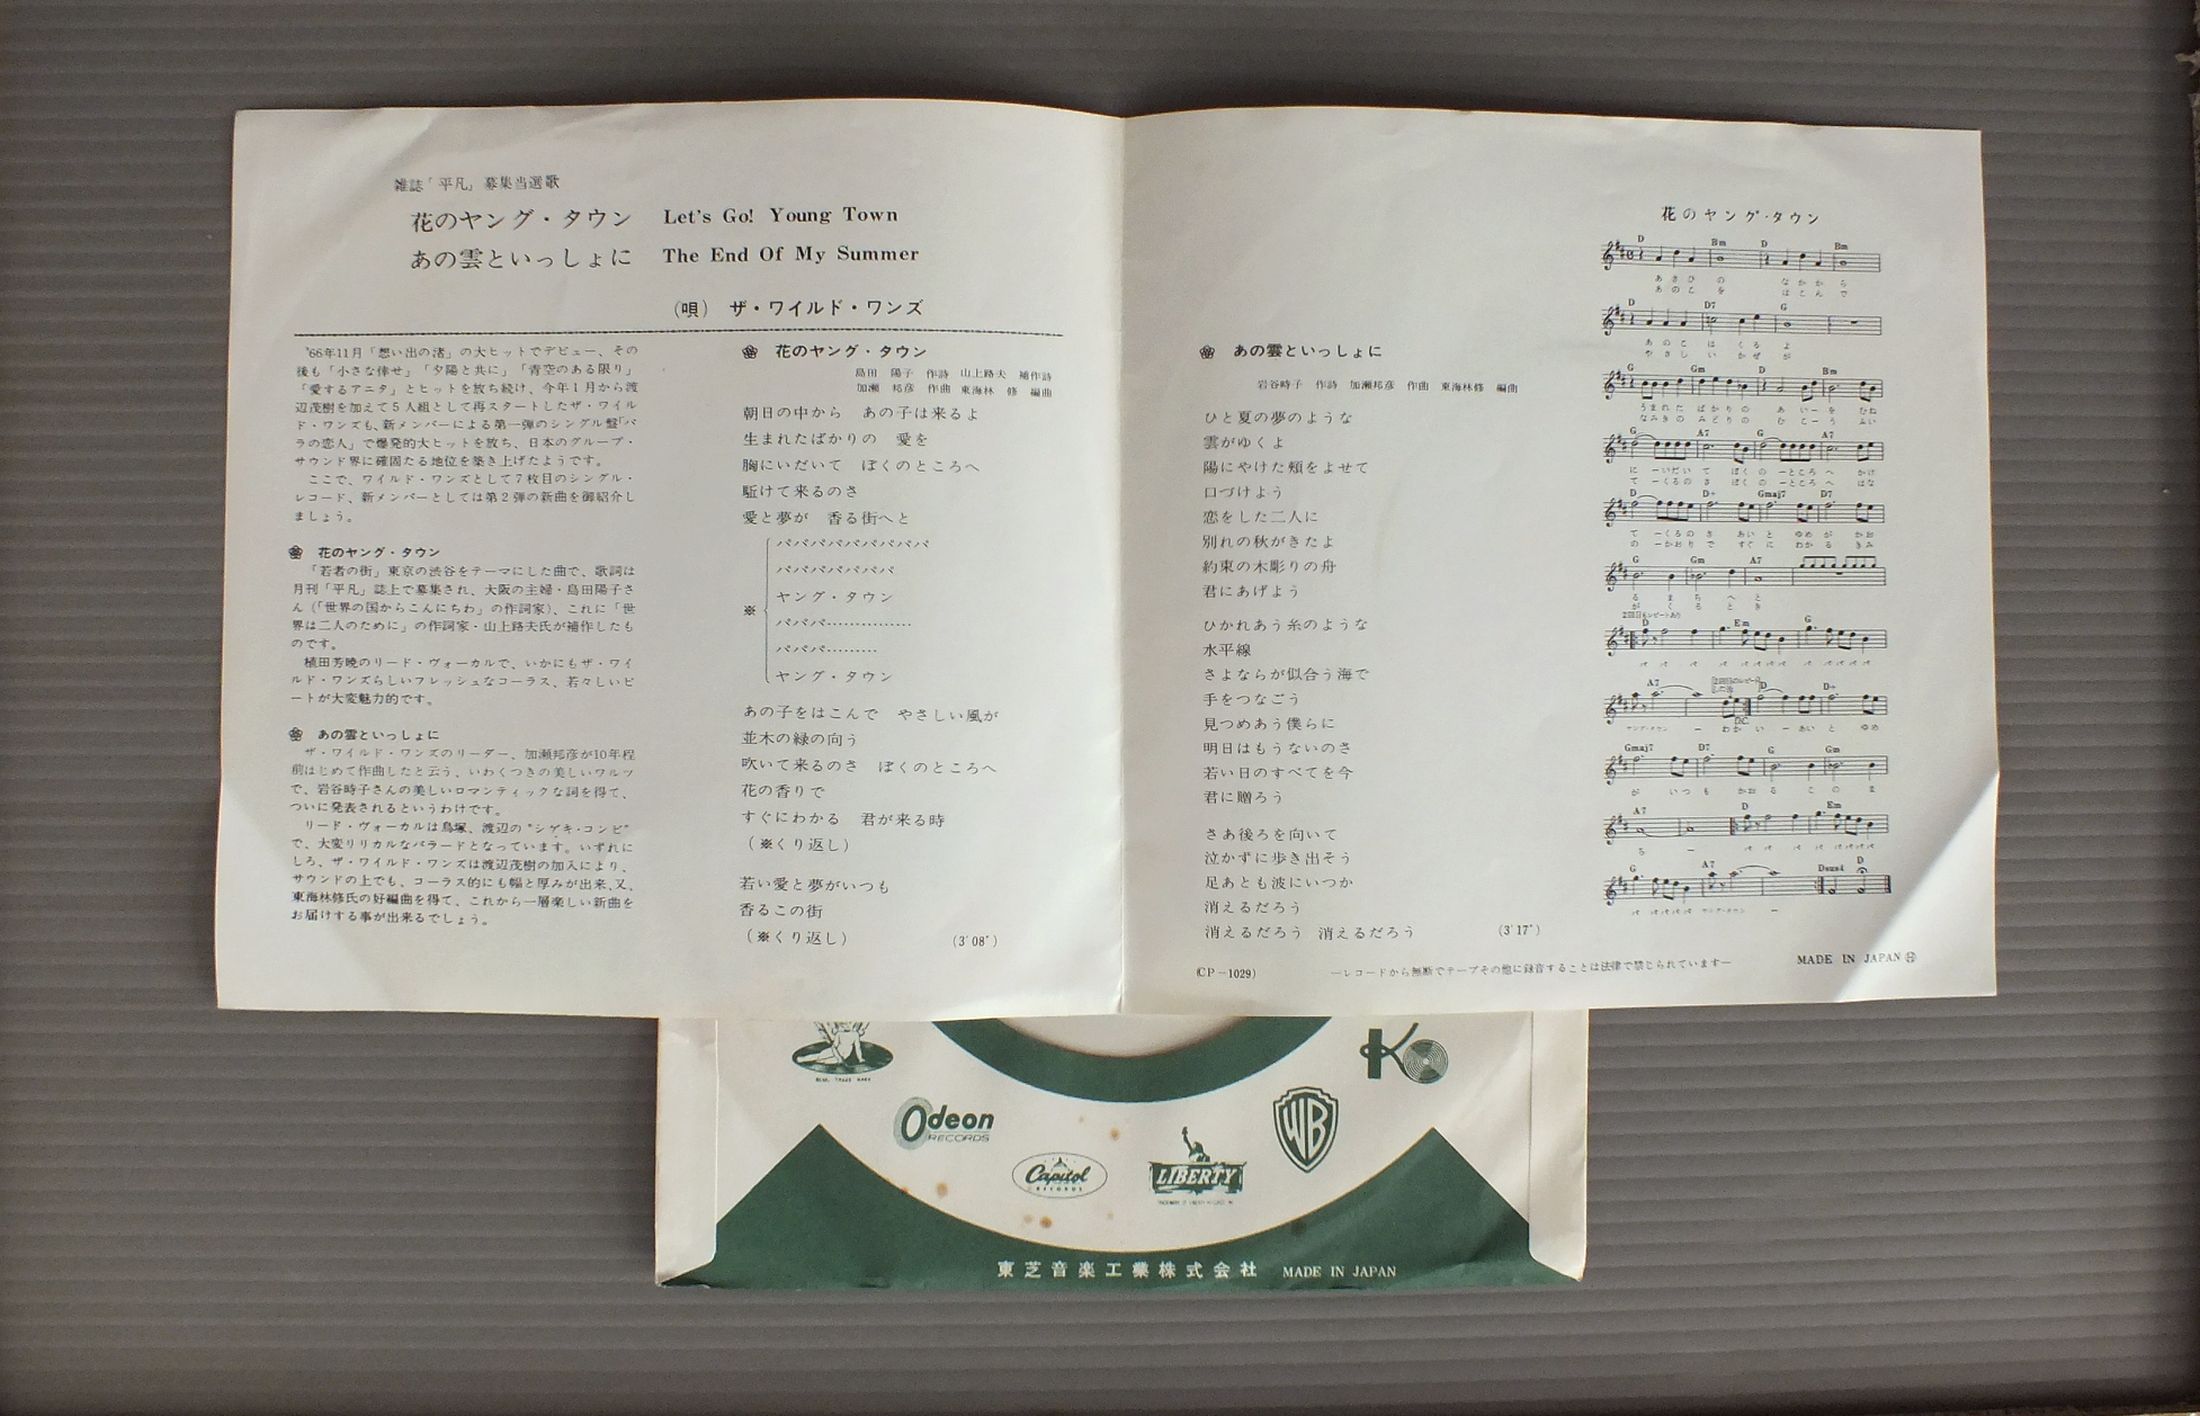 雑誌「平凡」募集当選歌
花のヤング・タウン Let's Go! Young Town
あの雲といっしょに The End Of My Summer
(唄) ザ・ワイルド・ワンズ
'66年11月「想い出の渚」の大ヒットでデビュー、その
後も「小さな倖せ」「夕陽と共に」「青空のある限り」
「愛するアニタ」とヒットを放ち続け、今年1月から渡
辺茂樹を加えて5人組として再スタートしたザ・ワイル
ド・ワンズも、新メンバーによる第一弾のシングル盤「バ
ラの恋人」で爆発的大ヒットを放ち、日本のグループ・
サウンド界に確固たる地位を築き上げたようです。
ここで、ワイルド・ワンズとして7枚目のシングル・
レコード、新メンバーとしては第2弾の新曲を御紹介し
ましょう。
花のヤング・タウン
「若者の街」東京の渋谷をテーマにした曲で、歌詞は
月刊「平凡」誌上で募集され、大阪の主婦・島田陽子さ
ん(「世界の国からこんにちわ」の作詞家)、これに「世
界は二人のために」の作詞家・山上路夫氏が補作したも
のです。
植田芳暁のリード・ヴォーカルで、いかにもザ・ワイ
ルド・ワンズらしいフレッシュなコーラス、若々しいビ
ートが大変魅力的です。
あの雲といっしょに
ザ・ワイルド・ワンズのリーダー、加瀬邦彦が10年程
前はじめて作曲したと云う、いわくつきの美しいワルツ
で、岩谷時子さんの美しいロマンティックな詞を得て、
ついに発表されるというわけです。
リード・ヴォーカルは鳥塚、渡辺の"シゲキ・コンビ"
で、大変リリカルなバラードとなっています。いずれに
しろ、ザ・ワイルド・ワンズは渡辺茂樹の加入により、
サウンドの上でも、コーラス的にも幅と厚みが出来、又、
東海林修氏の好編曲を得て、これから一層楽しい新曲を
お届けする事が出来るでしょう。
花のヤング・タウン
島田 陽子 作詩 山上路夫 補作詩
加瀬 邦彦 作曲 東海林 修 編曲
朝日の中から あの子は来るよ
生まれたばかりの 愛を
胸にいだいて ぼくのところへ
駈けて来るのさ
愛と夢が 香る街へと
パパパパパパパパパ
パパパパパパパ
ヤング・タウン
※ パパパ……………
パパパ………
ヤング・タウン
あの子をはこんで やさしい風が
並木の緑の向う
吹いて来るのさ ぼくのところへ
花の香りで
すぐにわかる 君が来る時
(※くり返し)
若い愛と夢がいつも
香るこの街
(※くり返し) (3'08")
あの雲といっしょに
岩谷時子 作詩 加瀬邦彦 作曲 東海林修 編曲
ひと夏の夢のような
雲がゆくよ
陽にやけた頬をよせて
口づけよう
恋をした二人に
別れの秋がきたよ
約束の木彫りの舟
君にあげよう
ひかれあう糸のような
水平線
さよならが似合う海で
手をつなごう
見つめあう僕らに
明日はもうないのさ
若い日のすべてを今
君に贈ろう
さあ後ろを向いて
泣かずに歩き出そう
足あとも波にいつか
消えるだろう
消えるだろう 消えるだろう (3'17")
(CP-1029) —レコードから無断でテープその他に録音することは法律で禁じられています— MADE IN JAPAN
花のヤング・タウン
D Bm D Bm
あさひ の なかから
あのこ を はこんで
D D7 G
あのこ は くる よ
やさし い かぜ が
G Gm D Bm
うまれた ばかりの あ いー を むね
なみきの みどりの む こー う ふい
G A7 G A7
に ーいだい て ぼく の ーところ へ かけ
て ーくるの さ ぼく の ーところ へ はな
D D+ Gmaj7 D7
て ーくるの さ あい と ゆめ が かお
の ーかおり で すぐ に わか る きみ
G Gm A7
る ま ち へ と
が く る と き
D Em G
パ パ パ パ パパパパ パ パパパパ
A7 D D+
ヤング・タウン ー わか い ー あい と ゆめ
Gmaj7 D7 G Gm
が いつ も かお る こ の ま
A7 D Em
ち ー パ パ パ パ パパパパ
G A7 Dsus4 D
パ パパパパ ヤング・タウン ー
Odeon
RECORDS
Capitol
RECORDS
LIBERTY
WB
K
東芝音楽工業株式会社 MADE IN JAPAN